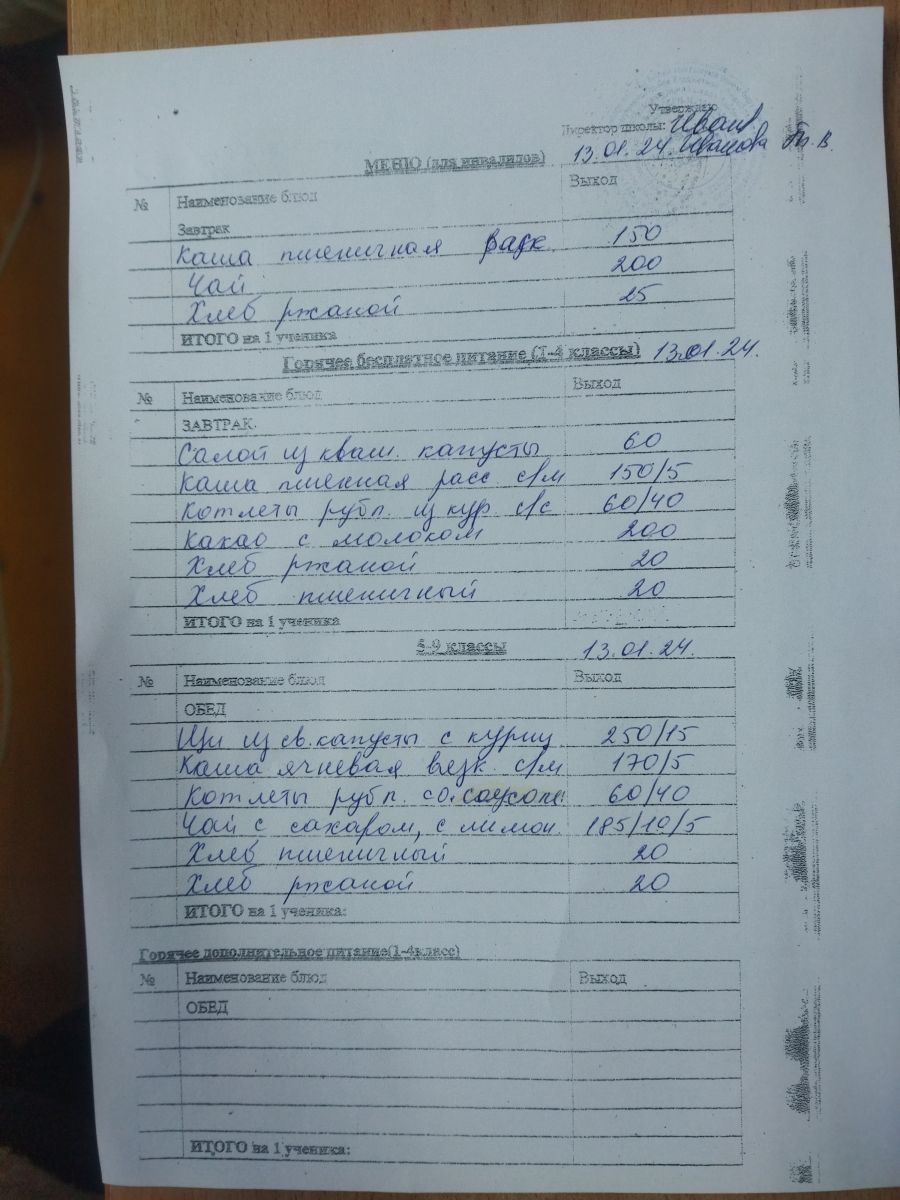 Утверждаю
Директор школы: Иван
МЕНЮ (для инвалидов) 13.01.24 Иванова Т.В.
№ Наименование блюд Выход
Завтрак
Каша пшеничная вязк. 150
Чай 200
Хлеб ржаной 25
ИТОГО на 1 ученика
Горячее бесплатное питание (1-4 классы) 13.01.24.
№ Наименование блюд Выход
ЗАВТРАК
Салат из кваш. капусты 60
Каша пшенная расс с/м 150/5
Котлеты рубл. из кур с/с 60/40
Какао с молоком 200
Хлеб ржаной 20
Хлеб пшеничный 20
ИТОГО на 1 ученика
5-9 классы 13.01.24.
№ Наименование блюд Выход
ОБЕД
Щи из св. капусты с куриц 250/15
Каша ячневая вязк. с/м 170/5
Котлеты рубл. со. соусом 60/40
Чай с сахаром, с лимон. 185/10/5
Хлеб пшеничный 20
Хлеб ржаной 20
ИТОГО на 1 ученика:
Горячее дополнительное питание(1-4класс)
№ Наименование блюд Выход
ОБЕД
ИТОГО на 1 ученика: